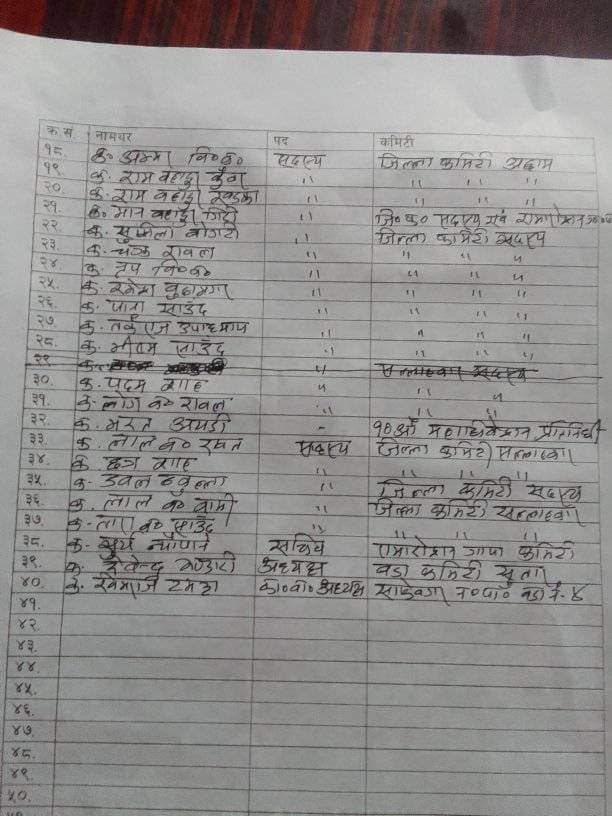 क्र.सं. नामथर पद कमिटी
१८. क. अम्मा वि०क० सदस्य जिल्ला कमिटी अछाम
१९. क. राम बहादुर कुँवर " " " "
२०. क. राम बहादुर खड्का " " " "
२१. क. मान बहादुर गिरी " जि०क० सदस्य एवं रामारोशन
२२. क. सुशिला बोगटी " जिल्ला कमिटी सदस्य
२३. क. चक्र रावल " " " "
२४. क. वि०क० " " " "
२५. क. बुढामगर " " " "
२६. क. साउँद " " " "
२७. क. तर्कराज उपाध्याय " " " "
२८. क. भीतम साउँद " " " "
२९. क. " सल्लाहकार सदस्य
३०. क. पदम शाह "
३१. क. लोग ब० रावल " " "
३२. क. भरत अयडी - १०औं महाधिवेशन प्रतिनिधी
३३. क. लाल ब० रावत सदस्य जिल्ला कमिटी सल्लाहकार
३४. क. छत्र शाह " " " "
३५. क. डबल " जिल्ला कमिटी सदस्य
३६. क. लाल ब० स्वामी " जिल्ला कमिटी सल्लाहकार
३७. क. तारा ब० साउँद " " " "
३८. क. सुर्य न्यौपाने सचिव रामारोशन गापा कमिटी
३९. क. देवेन्द्र भण्डारी अध्यक्ष वडा कमिटी
४०. क. खेमराज टमटा का०वा० अध्यक्ष साँफेबगर न०पा० वडा नं.४
४१.
४२.
४३.
४४.
४५.
४६.
४७.
४८.
४९.
५०.